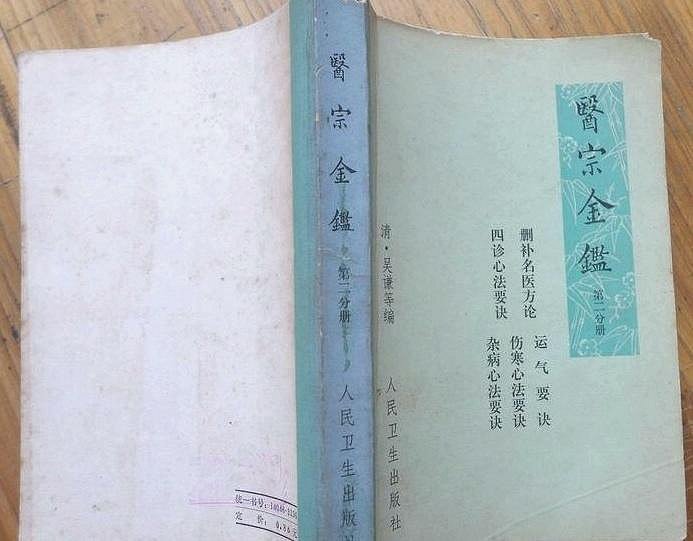 醫宗金鑑
第二分册
删补名医方论
四诊心法要诀
运气要诀
伤寒心法要诀
杂病心法要诀
清·吴谦等编
人民卫生出版社
醫宗金鑑
第二分册
人民卫生出版
统一书号:14048·
定价:0.86元